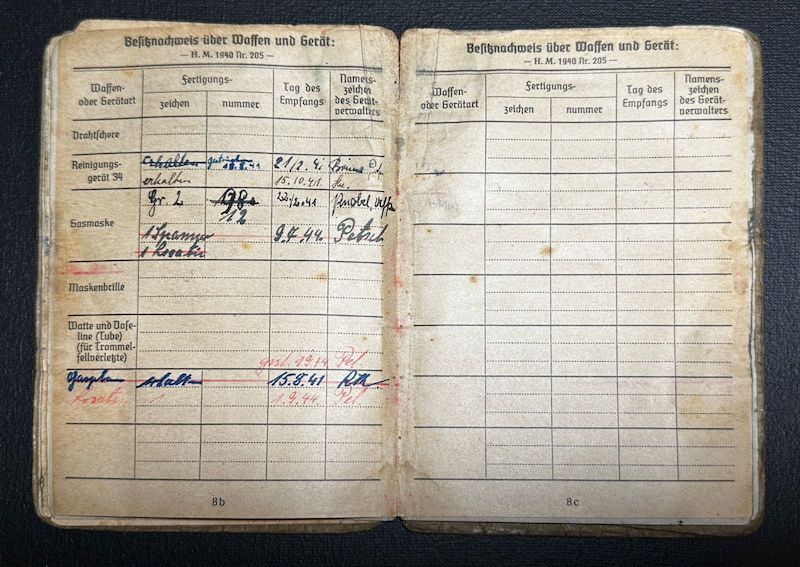 Besitznachweis über Waffen und Gerät:
— H. M. 1940 Nr. 205 —
Waffen- oder Gerätart
Fertigungs-
zeichen
nummer
Tag des Empfangs
Namens-zeichen des Gerät-verwalters
Drahtschere
Reinigungs-gerät 34
erhalten 18.8.41 21/2.41
erhalten 15.10.41
Gasmaske
Gr. 2 98 22/2.41 Knobel,
12
1 9.4.44 Petsch
1
Maskenbrille
Watte und Vase-line (Tube) (für Trommel-fellverletzte)
Pel.
erhalten 15.8.41
1 1.9.44 Pel.
8b
Besitznachweis über Waffen und Gerät:
— H. M. 1940 Nr. 205 —
Waffen- oder Gerätart
Fertigungs-
zeichen
nummer
Tag des Empfangs
Namens-zeichen des Gerät-verwalters
8c